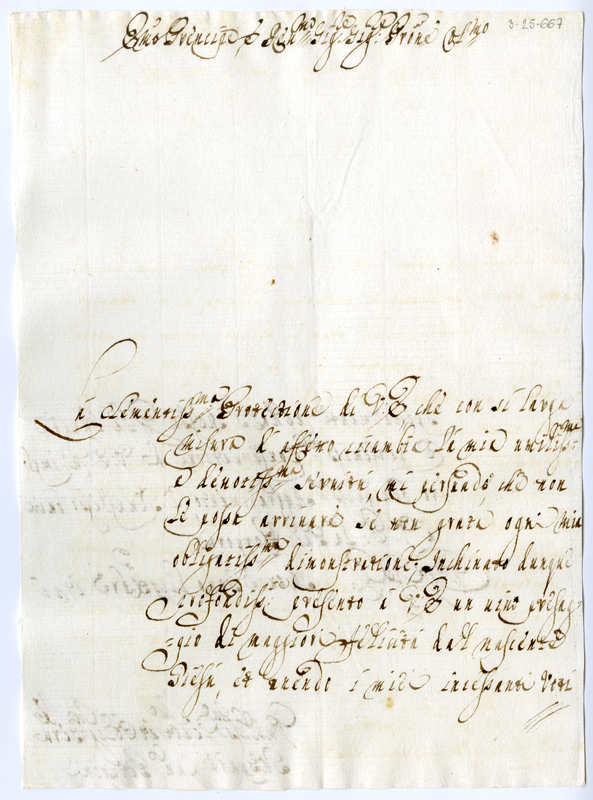 3-25-667
Em̃o Principe, e Rev.mo Sig.re Sig.re Prone Col.mo
La clementiss.ma Protettione di V: E, che con si larga
misura d'affetto, ricambia la mia umiliss:ma
e divotiss.ma servitù, mi persuade, che non
le possa arrivare se non grata ogni mia
obligatiss.ma dimonstratione. Inchinato dunque
profondiss.e presento à V: E un vivo presag=
=gio di maggiori felicità dall nascente
Giesù, et avendo i miei incessanti Voti